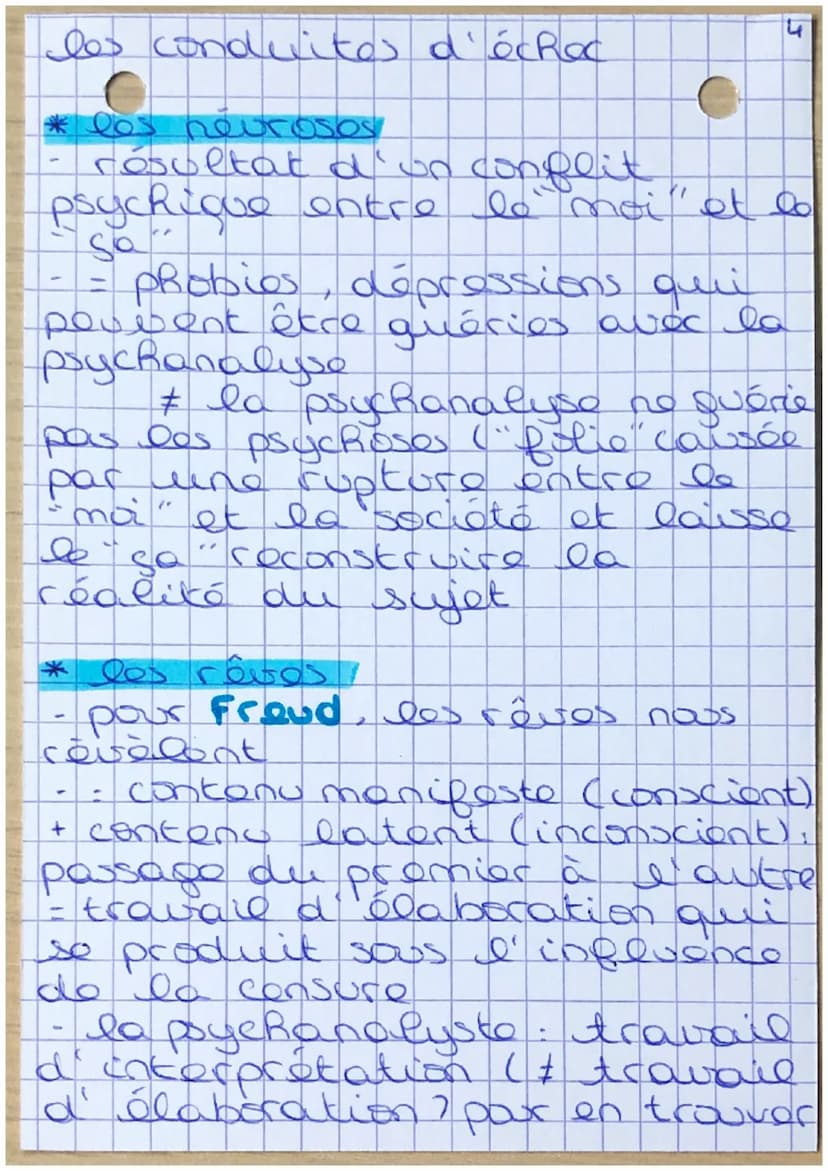 4
les conduites d'échec
* les névroses
- résultat d'un conflit
psychique entre le "moi" et le
"ça"
- = phobies, dépressions qui
peuvent être guéries avec la
psychanalyse
≠ la psychanalyse ne guérie
pas les psychoses ("folie" causée
par une rupture entre le
"moi" et la société et laisse
le "ça" reconstruire la
réalité du sujet
* les rêves
- pour Freud, les rêves nous
révèlent
- = contenu manifeste (conscient)
+ contenu latent (inconscient):
passage du premier à l'autre
= travail d'élaboration qui
se produit sous l'influence
de la censure
- la psychanalyste : travail
d'interprétation (≠ travail
d'élaboration) pour en trouver